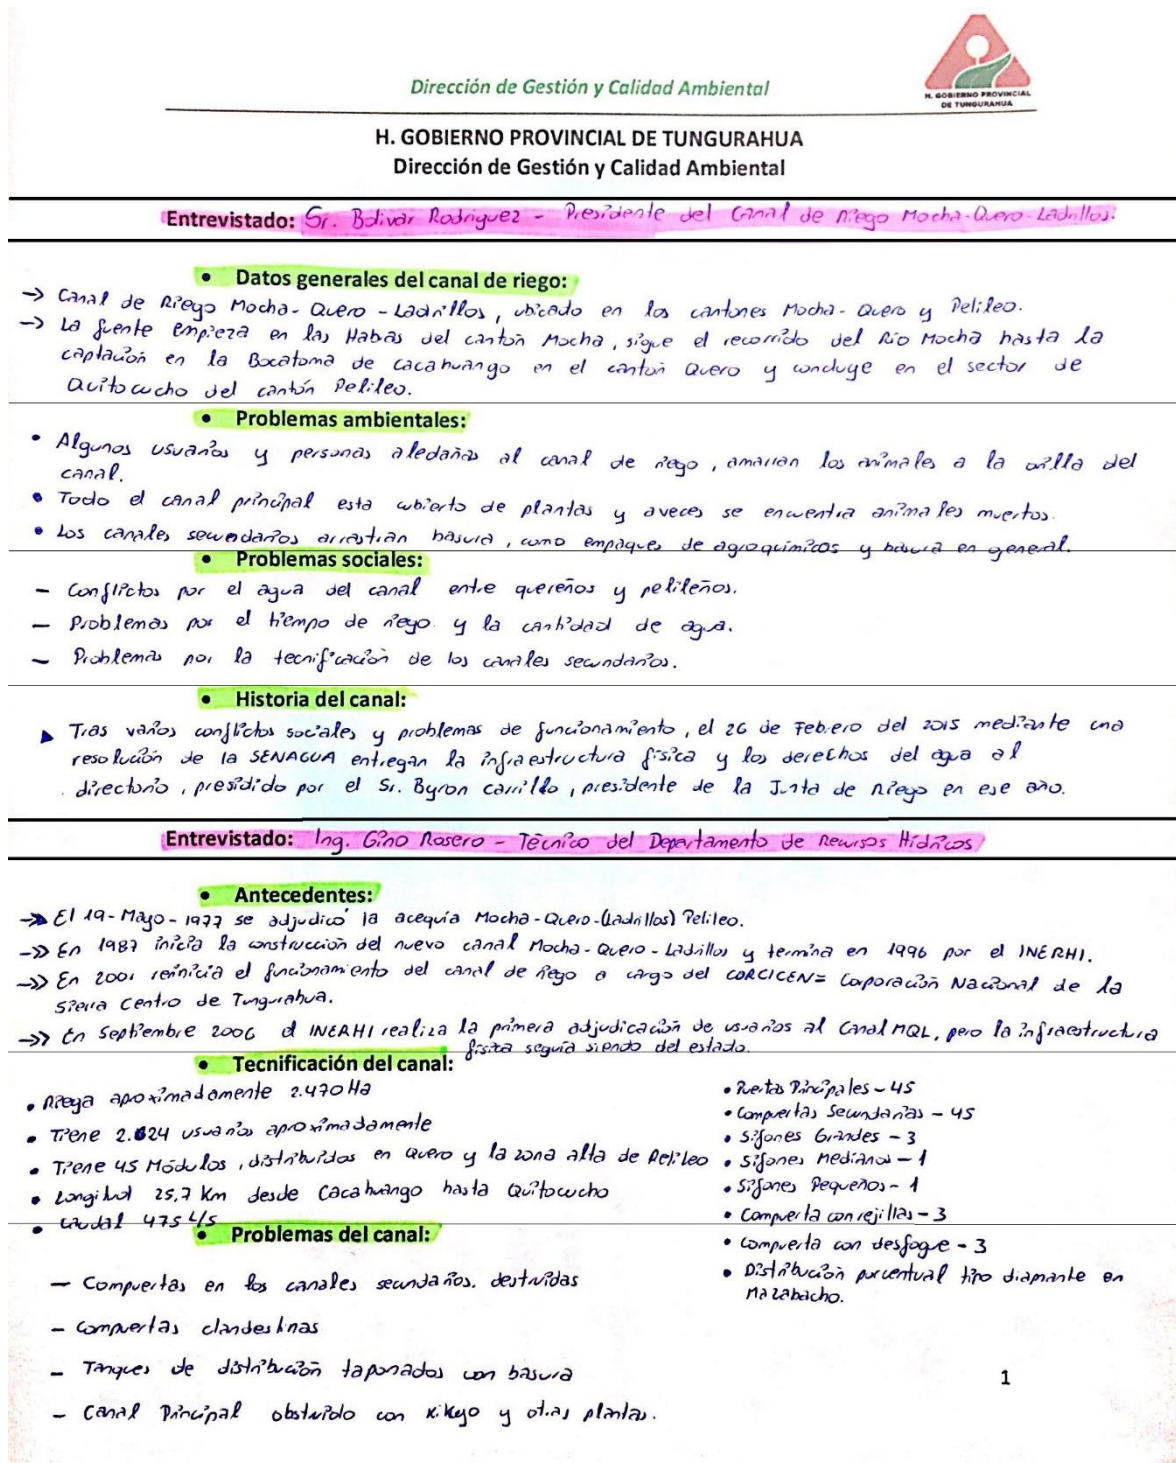 Dirección de Gestión y Calidad Ambiental
H. GOBIERNO PROVINCIAL
DE TUNGURAHUA
H. GOBIERNO PROVINCIAL DE TUNGURAHUA
Dirección de Gestión y Calidad Ambiental
Entrevistado: Sr. Bolivar Rodriguez - Presidente del Canal de Riego Mocha-Quero-Ladrillos.
• Datos generales del canal de riego:
→ Canal de Riego Mocha-Quero-Ladrillos, ubicado en los cantones Mocha-Quero y Pelileo.
→ La fuente empieza en las Habas del cantón Mocha, sigue el recorrido del Río Mocha hasta la
captación en la Bocatoma de Cacahuango en el cantón Quero y concluye en el sector de
Quitocucho del cantón Pelileo.
• Problemas ambientales:
• Algunos usuarios y personas aledañas al canal de riego, amarran los animales a la orilla del
canal.
• Todo el canal principal esta cubierto de plantas y aveces se encuentra animales muertos.
• Los canales secundarios arrastran basura, como empaques de agroquímicos y basura en general.
• Problemas sociales:
- Conflictos por el agua del canal entre quereños y pelileños.
- Problemas por el tiempo de riego y la cantidad de agua.
- Problemas por la tecnificación de los canales secundarios.
• Historia del canal:
▲ Tras varios conflictos sociales y problemas de funcionamiento, el 26 de Febrero del 2015 mediante una
resolución de la SENAGUA entregan la infraestructura física y los derechos del agua al
directorio, presidido por el Sr. Byron Carrillo, presidente de la Junta de Riego en ese año.
Entrevistado: Ing. Gino Rosero - Técnico del Departamento de Recursos Hídricos
• Antecedentes:
→ El 19-Mayo-1977 se adjudicó la acequia Mocha-Quero-(Ladrillos) Pelileo.
→ En 1987 inicia la construcción del nuevo canal Mocha-Quero-Ladrillos y termina en 1996 por el INERHI.
→ En 2001 reinicia el funcionamiento del canal de riego a cargo del CORCICEN= Corporación Nacional de la
Sierra Centro de Tungurahua.
→ En Septiembre 2006 el INERHI realiza la primera adjudicación de usuarios al Canal MQL, pero la infraestructura
física seguía siendo del estado.
• Tecnificación del canal:
• Riega aproximadamente 2.470 Ha
• Tiene 2.624 usuarios aproximadamente
• Tiene 45 Módulos, distribuidos en Quero y la zona alta de Pelileo
• Longitud 25,7 Km desde Cacahuango hasta Quitocucho
• Caudal 475 L/s
• Puertas Principales - 45
• Compuertas Secundarias - 45
• Sifones Grandes - 3
• Sifones Medianos - 1
• Sifones Pequeños - 1
• Compuerta con rejillas - 3
• Compuerta con desfogue - 3
• Distribución porcentual tipo diamante en
Mazabacho.
• Problemas del canal:
- Compuertas en los canales secundarios. destruidas
- Compuertas clandestinas
- Tanques de distribución taponados con basura
- Canal Principal obstruido con kikuyo y otras plantas.
1